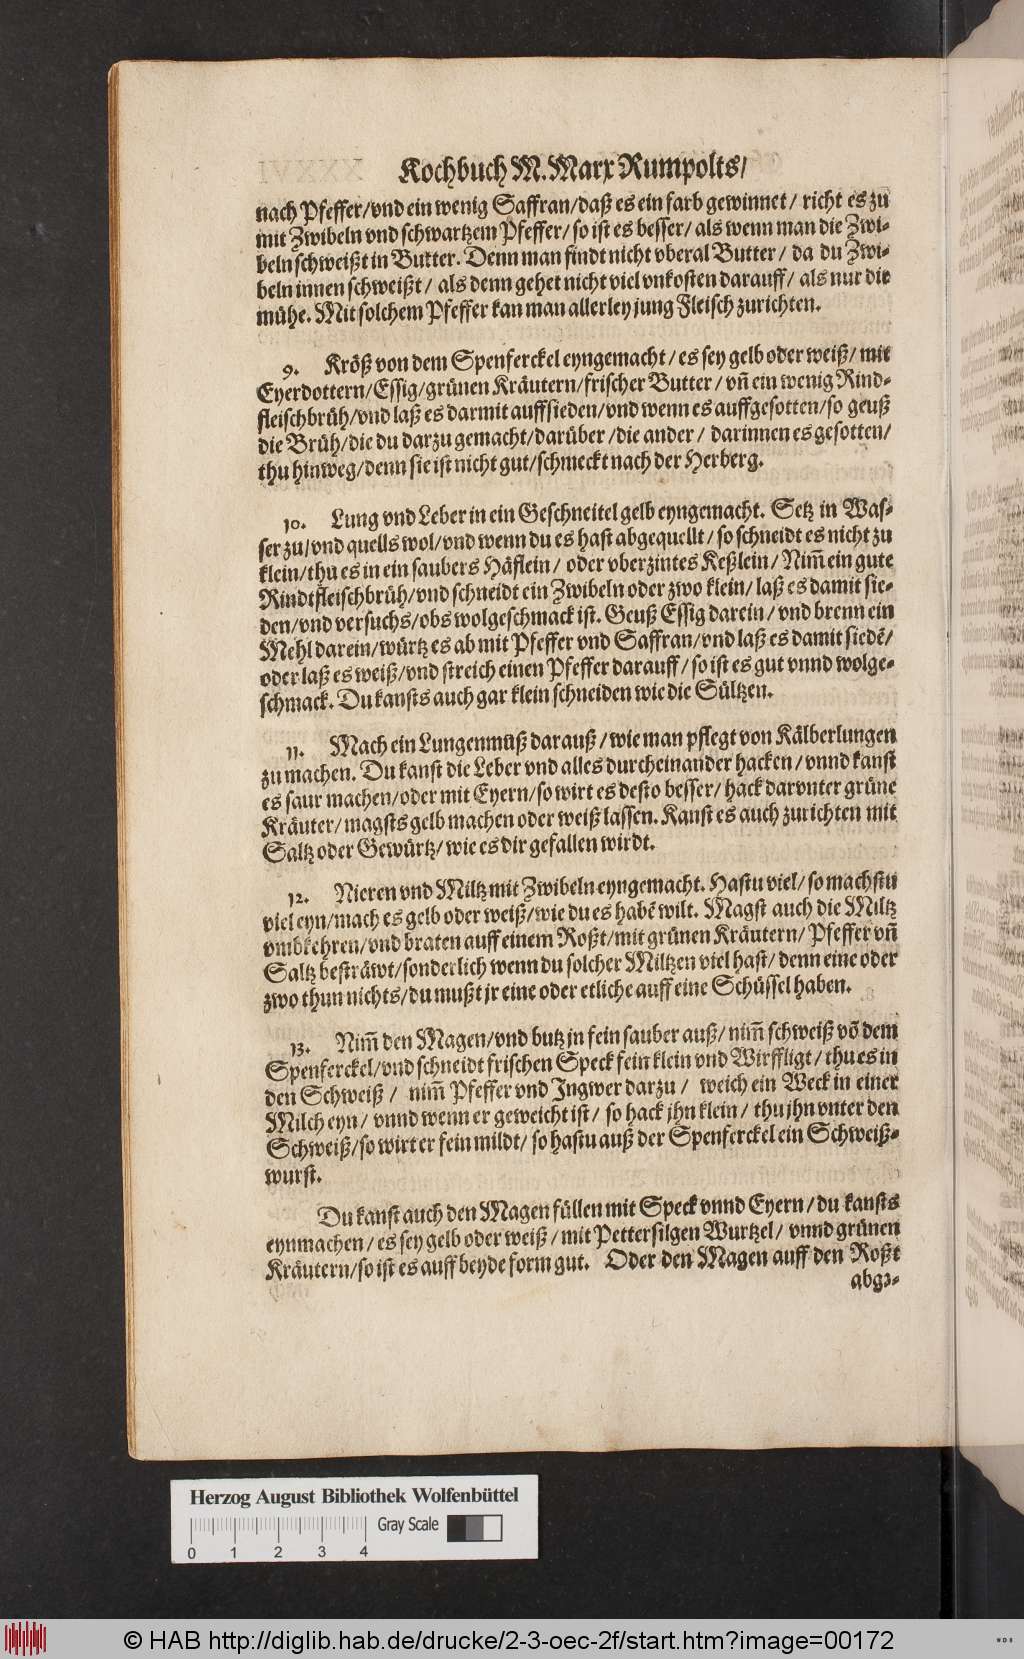 Kochbuch M. Marx Rumpolts/
nach Pfeffer/vnd ein wenig Saffran/daß es ein farb gewinnet/ richt es zu
mit Zwibeln vnd schwartzem Pfeffer/ so ist es besser/ als wenn man die Zwi-
beln schweißt in Butter. Denn man findt nicht vberal Butter/ da du Zwi-
beln innen schweißt/ als denn gehet nicht viel vnkosten darauff/ als nur die
mühe. Mit solchem Pfeffer kan man allerley jung Fleisch zurichten.
9. Kröß von dem Spenferckel eyngemacht/ es sey gelb oder weiß/ mit
Eyerdottern/Essig/grünen Kräutern/frischer Butter/ vñ ein wenig Rind-
fleischbrüh/vnd laß es darmit auffsieden/vnd wenn es auffgesotten/so geuß
die Brüh/die du darzu gemacht/darüber/die ander/ darinnen es gesotten/
thu hinweg/denn sie ist nicht gut/schmeckt nach der Herberg.
10. Lung vnd Leber in ein Geschneitel gelb eyngemacht. Setz in Was-
ser zu/vnd quells wol/vnd wenn du es hast abgequellt/ so schneidt es nicht zu
klein/thu es in ein saubers Häflein/ oder vberzintes Keßlein/ Nim̃ ein gute
Rindtfleischbrüh/vnd schneidt ein Zwibeln oder zwo klein/ laß es damit sie-
den/vnd versuchs/obs wolgeschmack ist. Geuß Essig darein/ vnd brenn ein
Mehl darein/würtz es ab mit Pfeffer vnd Saffran/vnd laß es damit siedẽ/
oder laß es weiß/vnd streich einen Pfeffer darauff/ so ist es gut vnnd wolge-
schmack. Du kansts auch gar klein schneiden wie die Sültzen.
11. Mach ein Lungenmůß darauß/ wie man pflegt von Kälberlungen
zu machen. Du kanst die Leber vnd alles durcheinander hacken/ vnnd kanst
es saur machen/oder mit Eyern/so wirt es desto besser/ hack darvnter grüne
Kräuter/ magsts gelb machen oder weiß lassen. Kanst es auch zurichten mit
Saltz oder Gewürtz/ wie es dir gefallen wirdt.
12. Nieren vnd Miltz mit Zwibeln eyngemacht. Hastu viel/ so machstu
viel eyn/mach es gelb oder weiß/wie du es habẽ wilt. Magst auch die Miltz
vmbkehren/vnd braten auff einem Roßt/mit grünen Kräutern/ Pfeffer vñ
Saltz besträwt/sonderlich wenn du solcher Miltzen viel hast/ denn eine oder
zwo thun nichts/du mußt jr eine oder etliche auff eine Schüssel haben.
13. Nim̃ den Magen/vnd butz jn fein sauber auß/ nim̃ schweiß võ dem
Spenferckel/vnd schneidt frischen Speck fein klein vnd Wirffligt/ thu es in
den Schweiß/ nim̃ Pfeffer vnd Jngwer darzu/ weich ein Weck in einer
Milch eyn/ vnnd wenn er geweicht ist/ so hack jhn klein/ thu jhn vnter den
Schweiß/so wirt er fein mildt/ so hastu auß der Spenferckel ein Schweiß-
wurst.
Du kanst auch den Magen füllen mit Speck vnnd Eyern/ du kansts
eynmachen/ es sey gelb oder weiß/ mit Pettersilgen Wurtzel/ vnnd grünen
Kräutern/so ist es auff beyde form gut. Oder den Magen auff den Roßt
abge-
Herzog August Bibliothek Wolfenbüttel
Gray Scale
0 1 2 3 4
© HAB http://diglib.hab.de/drucke/2-3-oec-2f/start.htm?image=00172